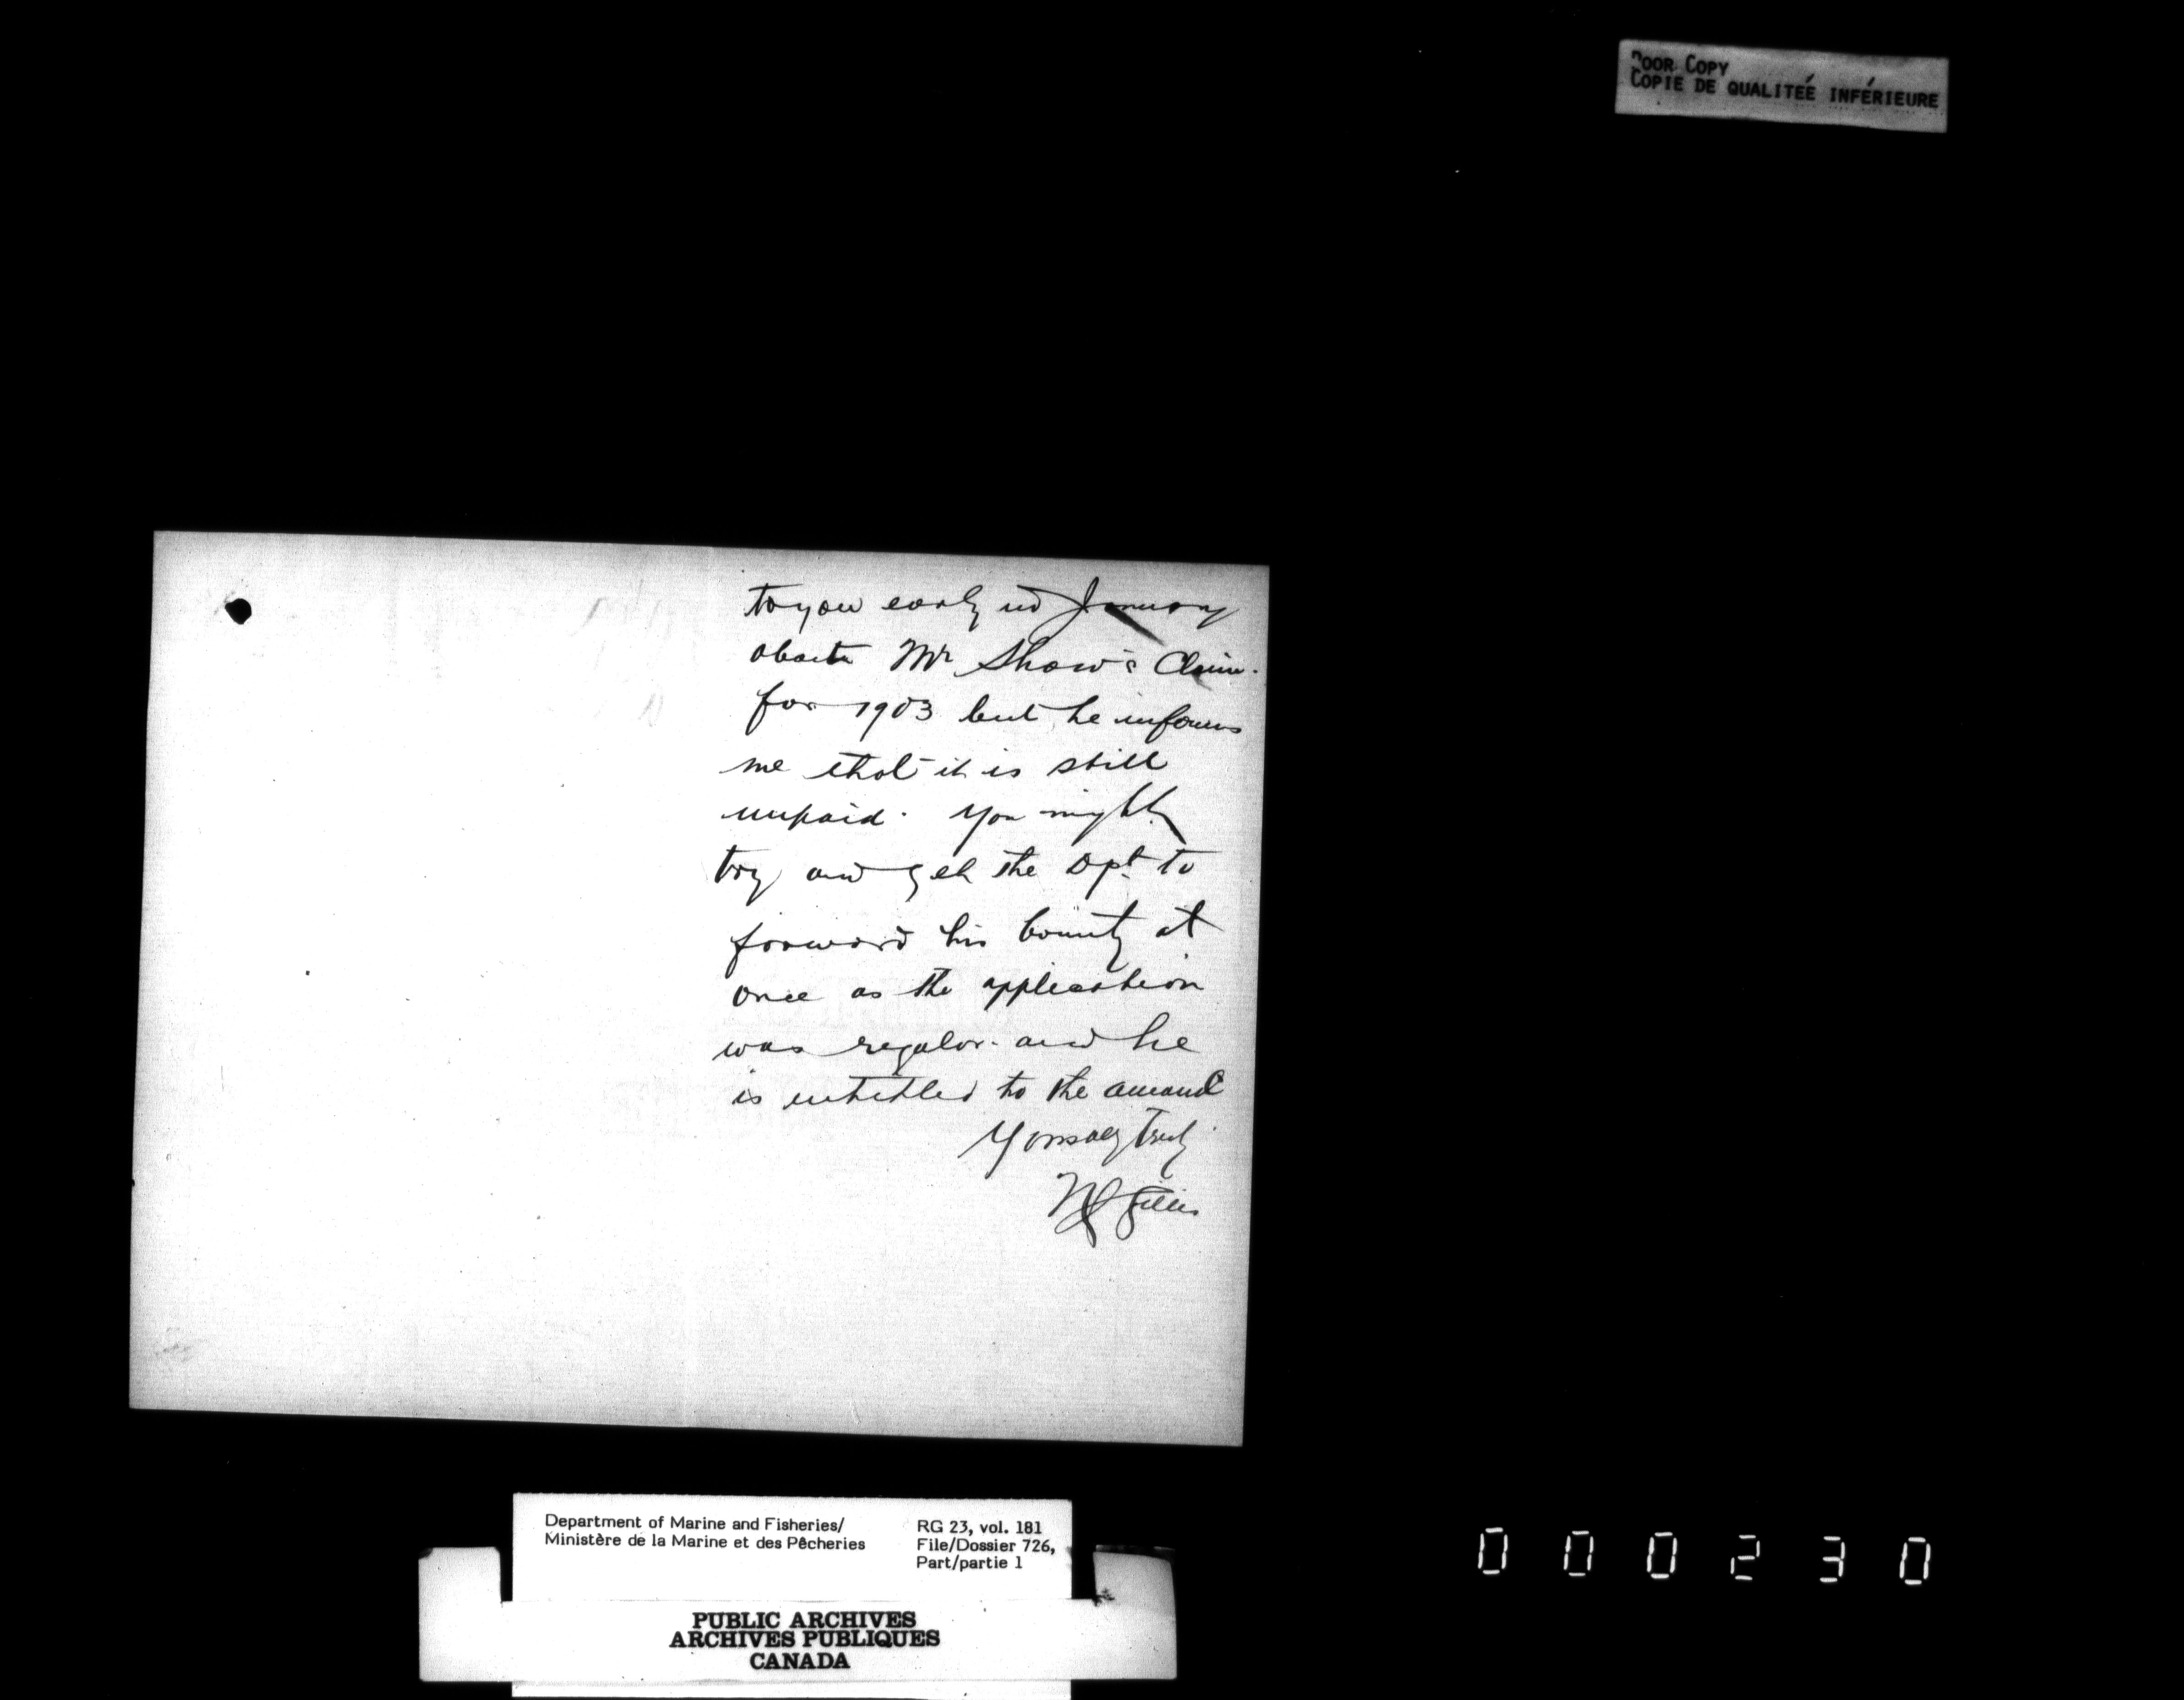 POOR COPY
COPIE DE QUALITEÉ INFÉRIEURE
to you early in January
about Mr Shaw's Claim.
for 1903 but he informs
me that it is still
unpaid. You might
try and get the Dpt. to
forward his bounty at
once as the application
was regular. and he
is entitled to the amount
Yours truly
Gillis
Department of Marine and Fisheries/
Ministère de la Marine et des Pêcheries
RG 23, vol. 181
File/Dossier 726,
Part/partie 1
PUBLIC ARCHIVES
ARCHIVES PUBLIQUES
CANADA
000230